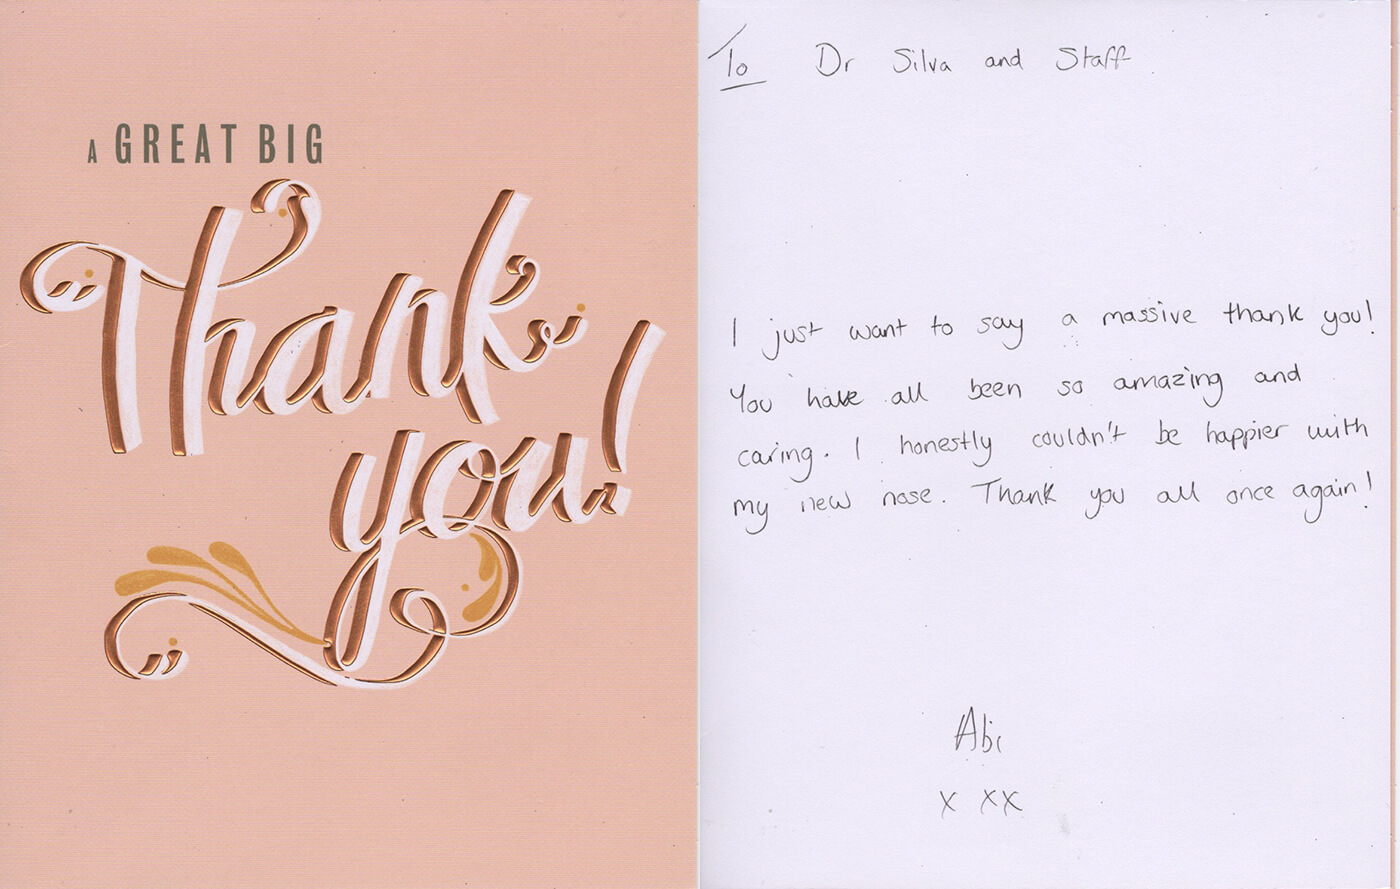 A GREAT BIG
Thank
you!
To Dr Silva and Staff
I just want to say a massive thank you!
You have all been so amazing and
caring. I honestly couldn't be happier with
my new nose. Thank you all once again!
Abi
x xx